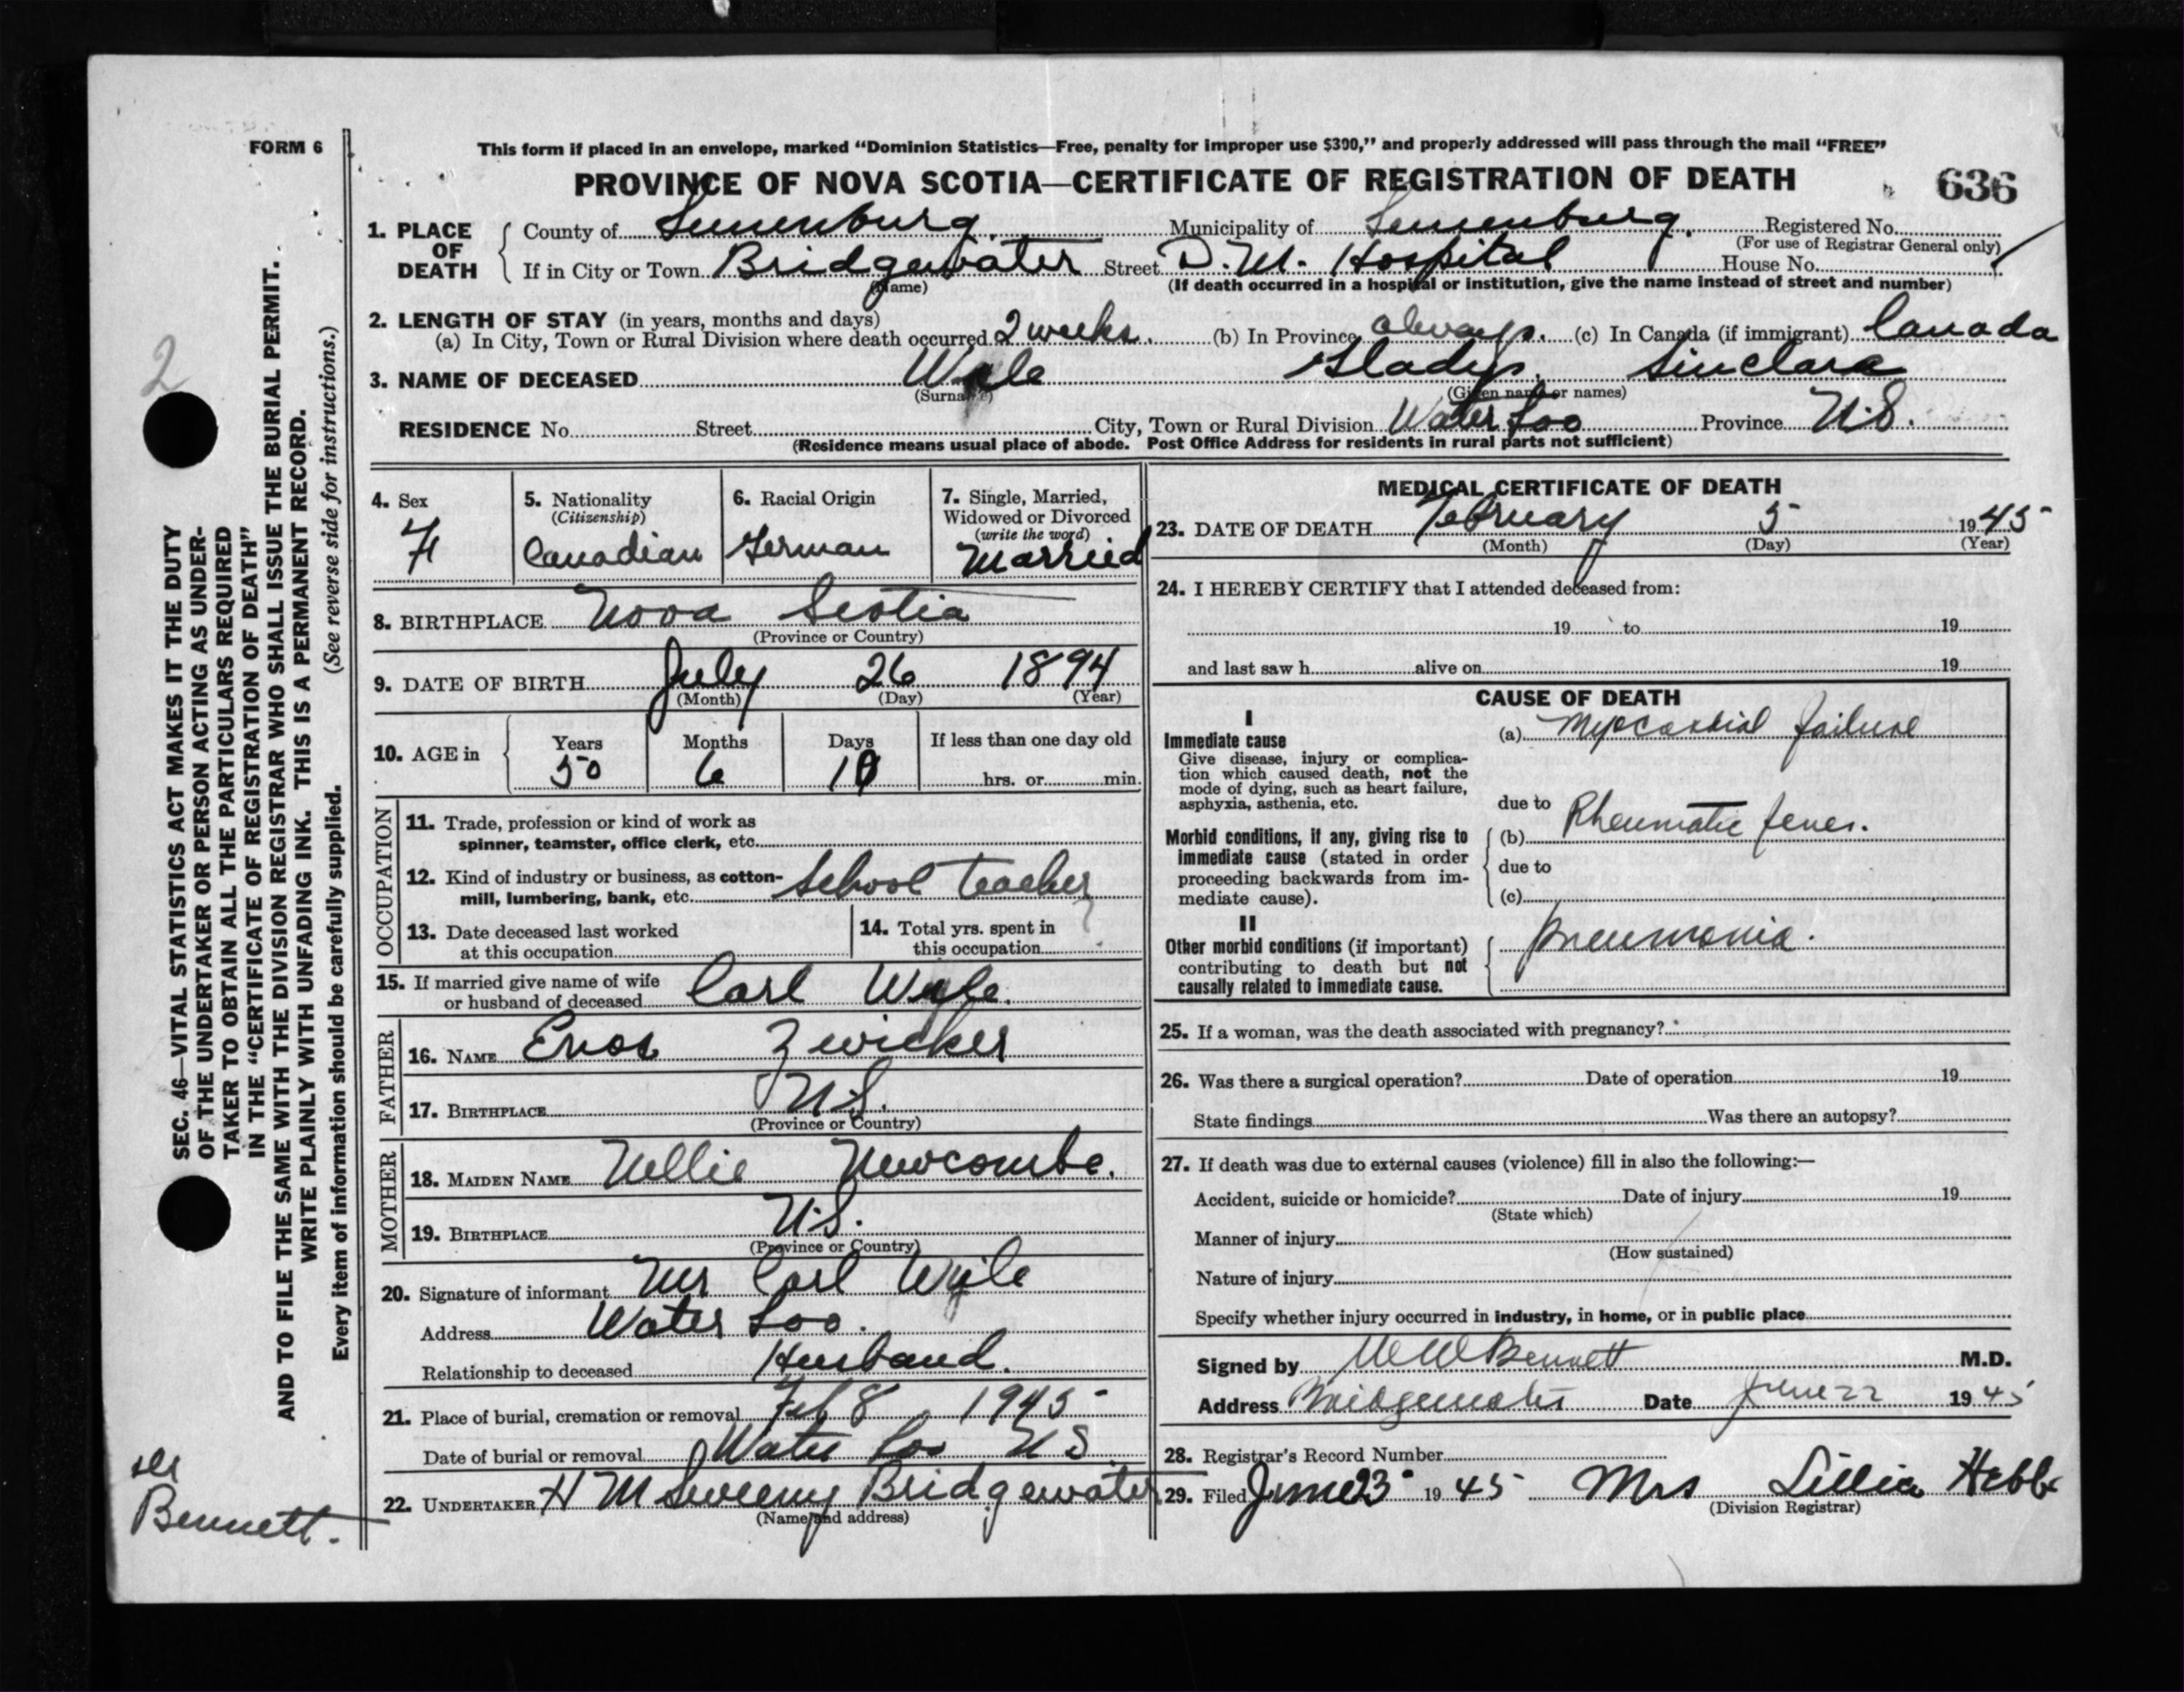 FORM 6
This form if placed in an envelope, marked "Dominion Statistics—Free, penalty for improper use $300," and properly addressed will pass through the mail "FREE"
PROVINCE OF NOVA SCOTIA—CERTIFICATE OF REGISTRATION OF DEATH
636
1. PLACE OF DEATH
County of Lunenburg. Municipality of Lunenburg. Registered No.
(For use of Registrar General only)
If in City or Town Bridgewater Street D.M. Hospital House No.
(Name) (If death occurred in a hospital or institution, give the name instead of street and number)
2. LENGTH OF STAY (in years, months and days)
(a) In City, Town or Rural Division where death occurred 2 weeks. (b) In Province always. (c) In Canada (if immigrant) Canada
3. NAME OF DECEASED Wile Gladys Sinclara
(Surname) (Given name or names)
RESIDENCE No. Street City, Town or Rural Division Water Loo Province N.S.
(Residence means usual place of abode. Post Office Address for residents in rural parts not sufficient)
4. Sex
F
5. Nationality
(Citizenship)
Canadian
6. Racial Origin
German
7. Single, Married,
Widowed or Divorced
(write the word)
Married
8. BIRTHPLACE Nova Scotia
(Province or Country)
9. DATE OF BIRTH July 26 1894
(Month) (Day) (Year)
10. AGE in
Years Months Days If less than one day old
50 6 10 hrs. or min.
OCCUPATION
11. Trade, profession or kind of work as
spinner, teamster, office clerk, etc.
12. Kind of industry or business, as cotton-
mill, lumbering, bank, etc. School Teacher
13. Date deceased last worked
at this occupation
14. Total yrs. spent in
this occupation
15. If married give name of wife
or husband of deceased Carl Wyle.
FATHER
16. NAME Enos Zwicker
17. BIRTHPLACE N.S.
(Province or Country)
MOTHER
18. MAIDEN NAME Nellie Newcombe.
19. BIRTHPLACE N.S.
(Province or Country)
20. Signature of informant Mr Carl Wile
Address Water Loo.
Relationship to deceased Husband.
21. Place of burial, cremation or removal Feb 8, 1945
Date of burial or removal Water Loo N S
22. UNDERTAKER H M Sweeny Bridgewater
(Name and address)
MEDICAL CERTIFICATE OF DEATH
23. DATE OF DEATH February 5 1945
(Month) (Day) (Year)
24. I HEREBY CERTIFY that I attended deceased from:
19 to 19
and last saw h alive on 19
CAUSE OF DEATH
I
Immediate cause
Give disease, injury or complica-
tion which caused death, not the
mode of dying, such as heart failure,
asphyxia, asthenia, etc.
(a) Myocardial failure
due to
Morbid conditions, if any, giving rise to
immediate cause (stated in order
proceeding backwards from im-
mediate cause).
(b) Rheumatic fever.
due to
(c)
II
Other morbid conditions (if important)
contributing to death but not
causally related to immediate cause.
Pneumonia.
25. If a woman, was the death associated with pregnancy?
26. Was there a surgical operation? Date of operation 19
State findings Was there an autopsy?
27. If death was due to external causes (violence) fill in also the following:—
Accident, suicide or homicide? Date of injury 19
(State which)
Manner of injury
(How sustained)
Nature of injury
Specify whether injury occurred in industry, in home, or in public place
Signed by Bennett M.D.
Address Bridgewater Date June 22 1945
28. Registrar's Record Number
29. Filed June 23 1945 Mrs Lillia Hebb
(Division Registrar)
SEC. 46—VITAL STATISTICS ACT MAKES IT THE DUTY
OF THE UNDERTAKER OR PERSON ACTING AS UNDER-
TAKER TO OBTAIN ALL THE PARTICULARS REQUIRED
IN THE "CERTIFICATE OF REGISTRATION OF DEATH"
AND TO FILE THE SAME WITH THE DIVISION REGISTRAR WHO SHALL ISSUE THE BURIAL PERMIT.
WRITE PLAINLY WITH UNFADING INK. THIS IS A PERMANENT RECORD.
Every item of information should be carefully supplied. (See reverse side for instructions.)
2
Bennett.